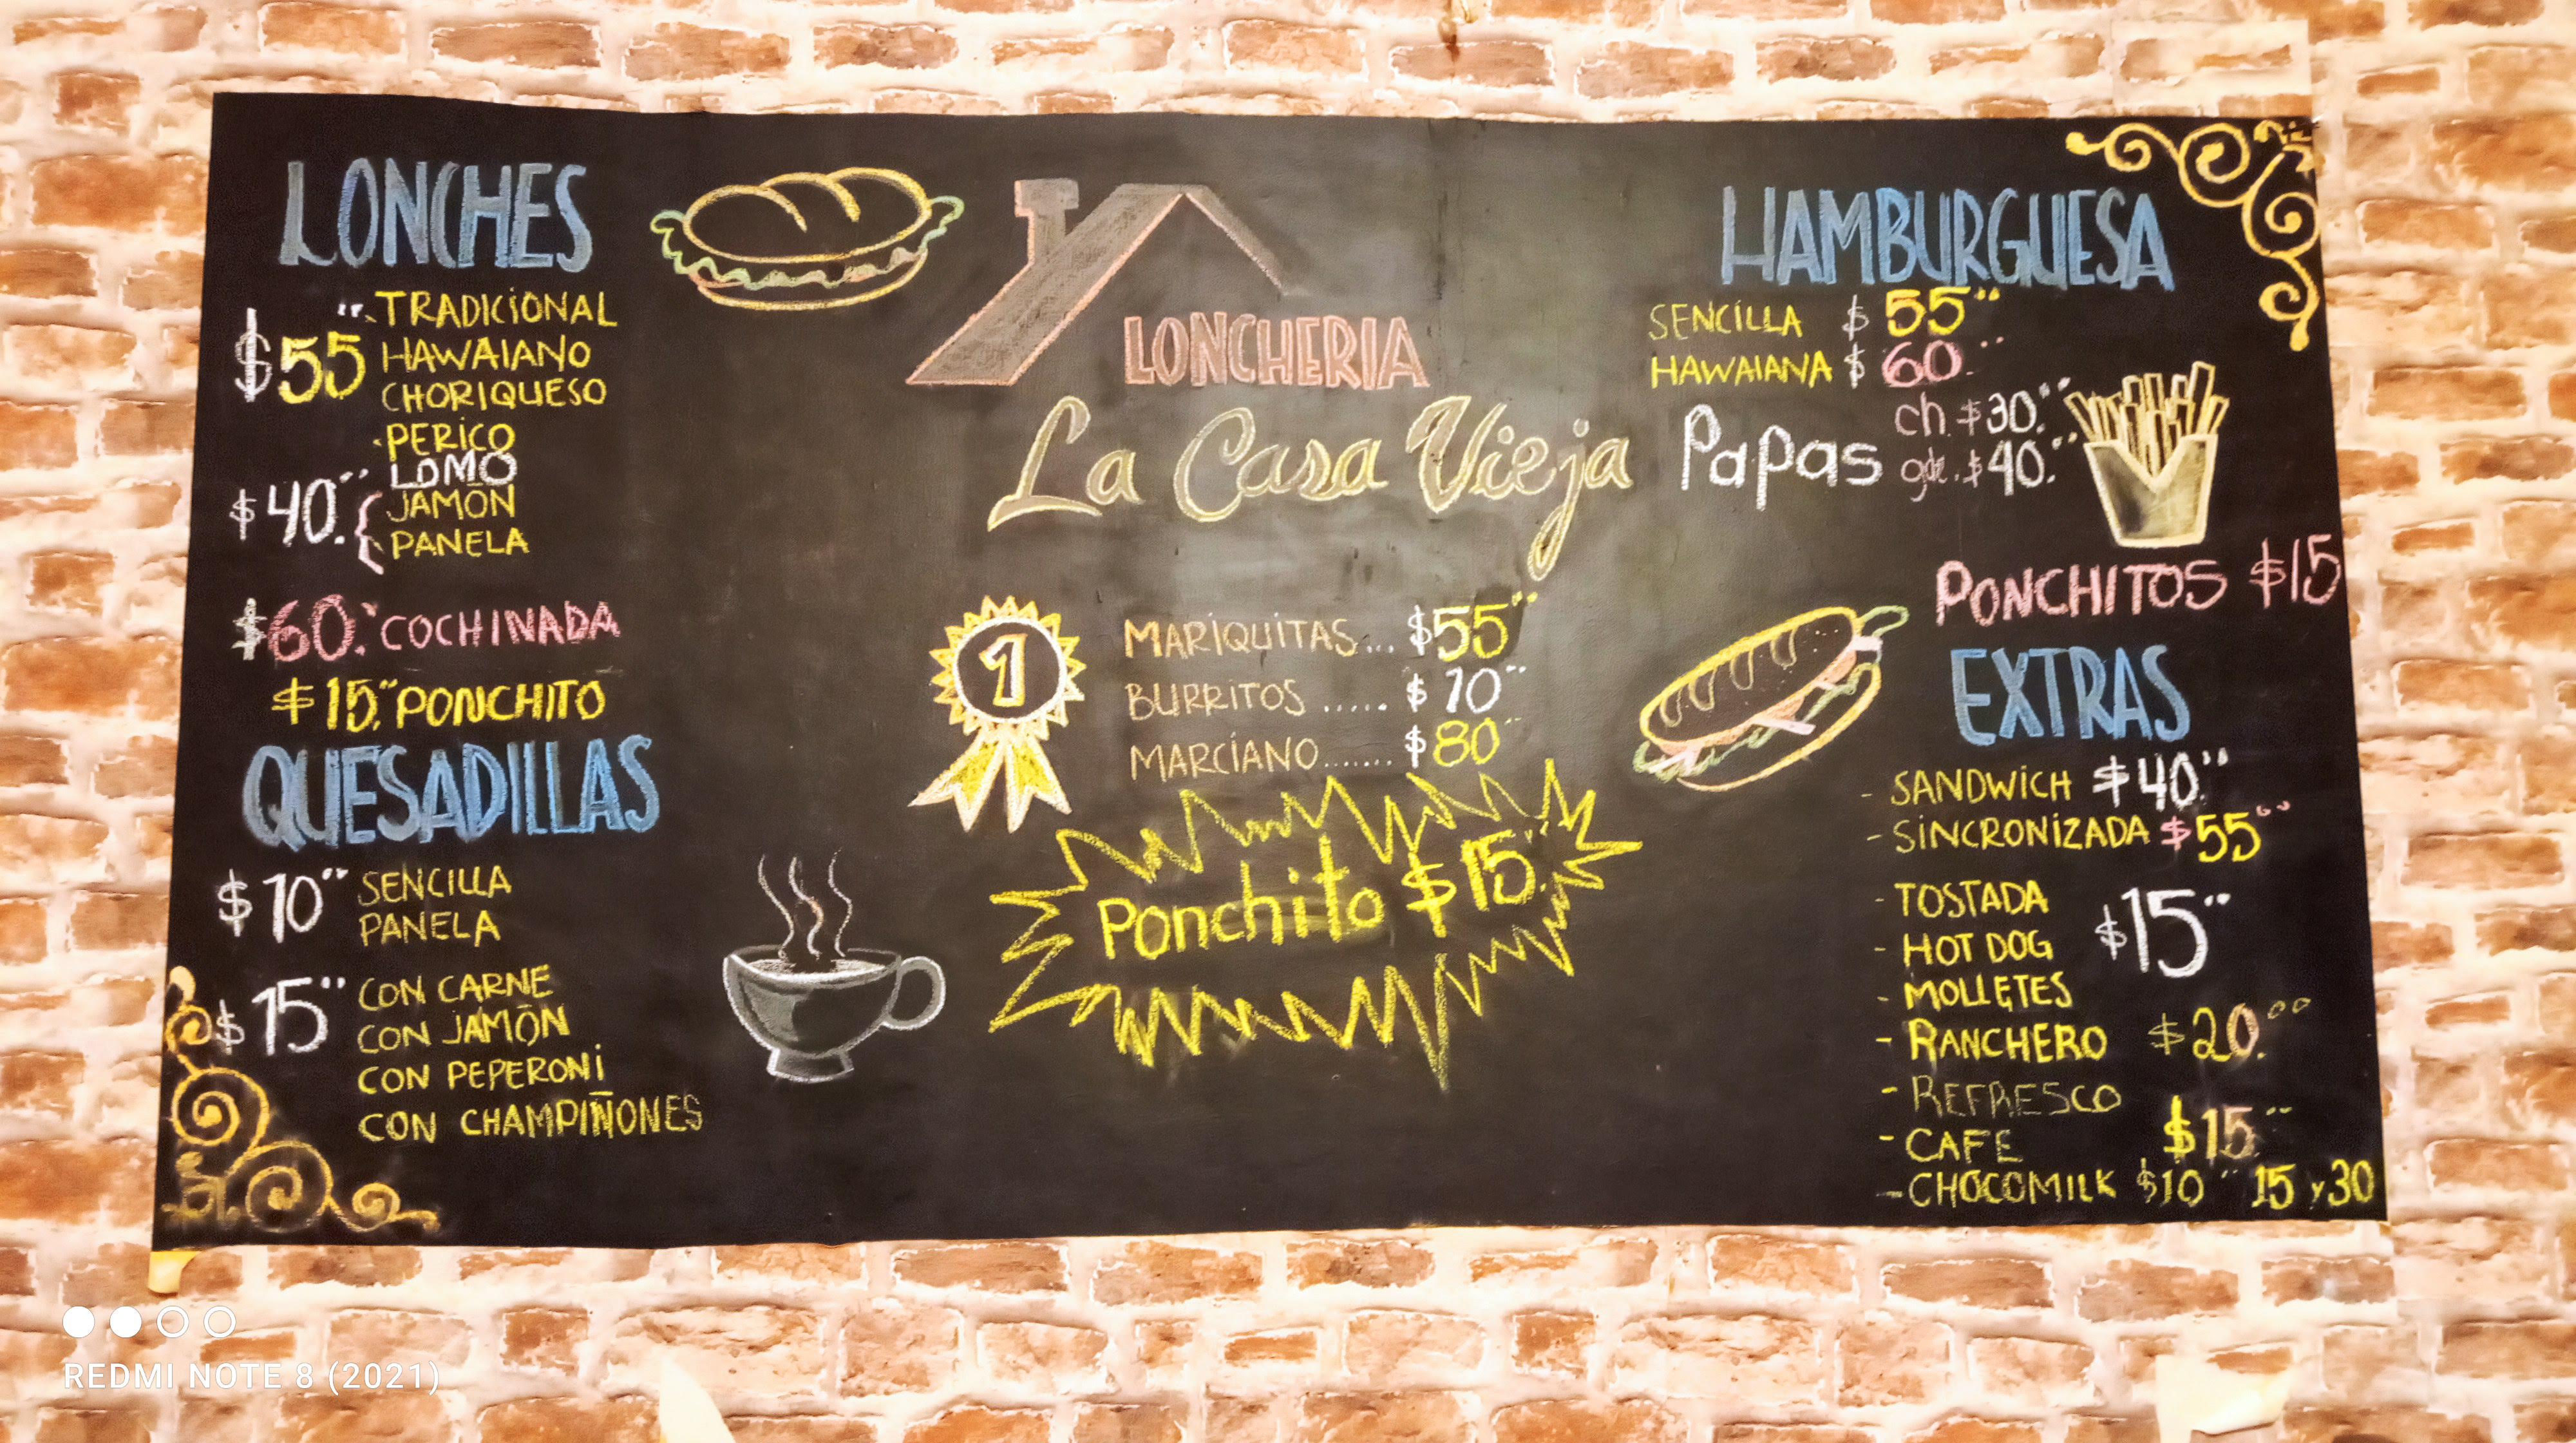 LONCHES
TRADICIONAL
$55 HAWAIANO
CHORIQUESO
PERICO
LOMO
$40. JAMÓN
PANELA
$60. COCHINADA
$15. PONCHITO
QUESADILLAS
$10 SENCILLA
PANELA
$15 CON CARNE
CON JAMÓN
CON PEPERONI
CON CHAMPIÑONES
LONCHERIA
La Casa Vieja
1
MARIQUITAS... $55
BURRITOS ...... $10
MARCIANO....... $80
Ponchito $15.
HAMBURGUESA
SENCILLA $55
HAWAIANA $60
Papas ch. $30.
gde. $40.
PONCHITOS $15
EXTRAS
- SANDWICH $40.
- SINCRONIZADA $55
- TOSTADA
- HOT DOG $15
- MOLLETES
- RANCHERO $20.00
- REFRESCO
- CAFE $15
- CHOCOMILK $10 15 y 30
REDMI NOTE 8 (2021)